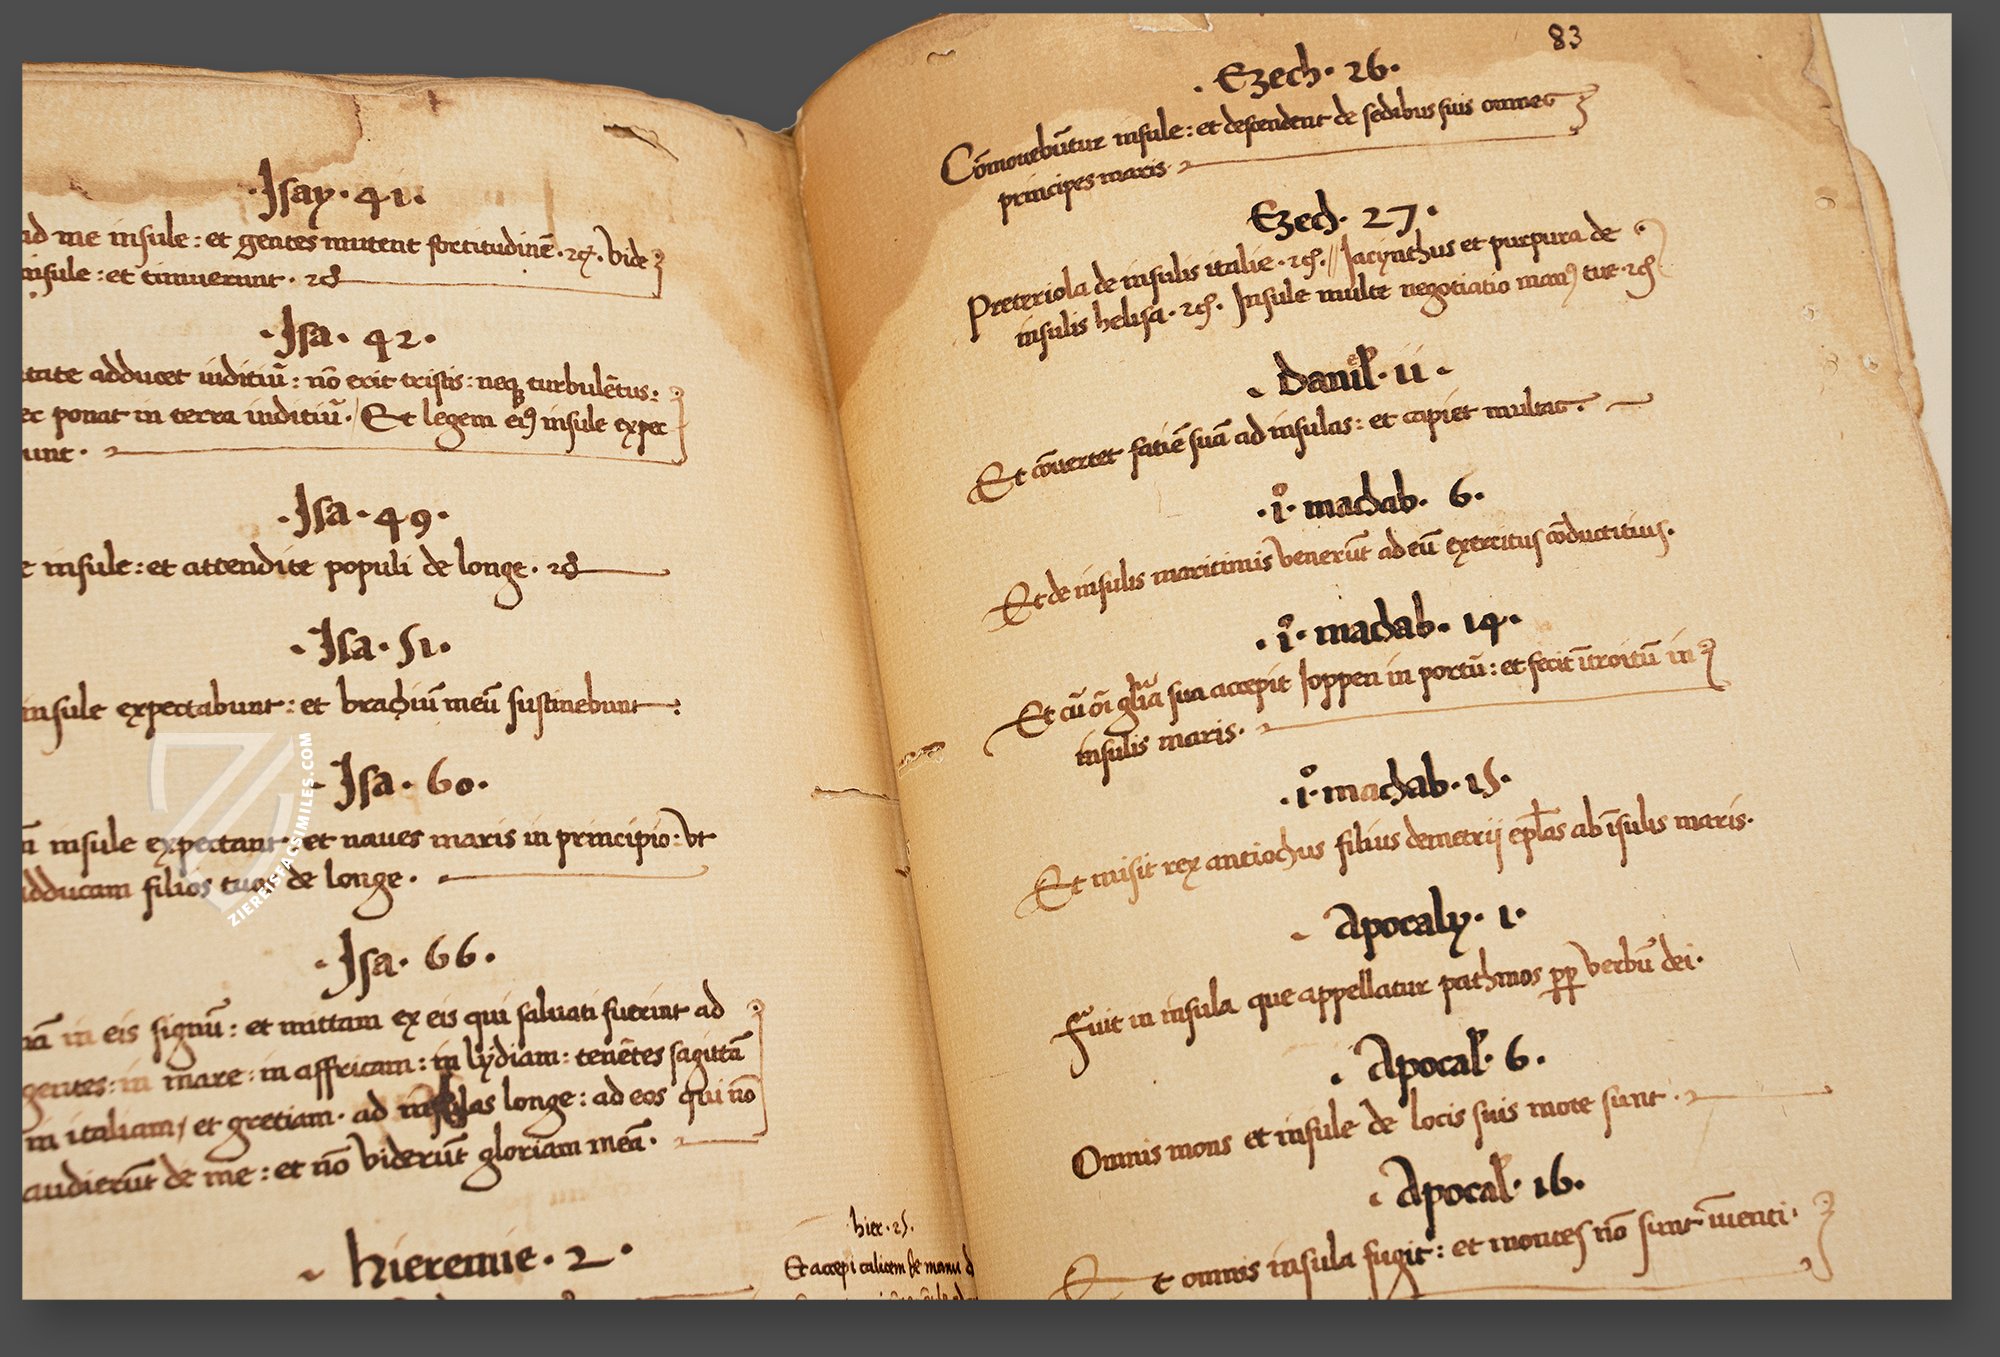 ·Isay·41·
ad me insule: et gentes mutent fortitudinē·⁊č·Vide
insule: et timuerunt·⁊č
·Isa·42·
adducet iuditiū: nō erit tristis: neq turbulētus:
ponat in terra iuditiū·/Et legem eiꝰ insule expec
unt·
·Isa·49·
insule: et attendite populi de longe·⁊č
·Isa·51·
insule expectabunt: et brachiū meū sustinebunt:
·Isa·60·
insule expectant: et naues maris in principio: vt
adducam filios tuos de longe·
·Isa·66·
in eis signū: et mittam ex eis qui saluati fuerint ad
gentes: in mare: in affricam: in lydiam: tenētes sagittā
in italiam/ et gretiam· ad insulas longe: ad eos qui nō
audierūt de me: et nō viderūt gloriam meā·
hieremie·2·
hier·25·
Et accepi calicem de manu d
83
·Ezech·26·
Cōmouebūtur insule: et descendent de sedibus suis omnes
principes maris·
Ezech·27·
Preteriola de insulis italie·⁊č·// Iacynthus et purpura de
insulis helisa·⁊č· Insule multe negotiatio manꝰ tue·⁊č
·Daniel·11·
Et cōuertet fatiē suā ad insulas: et capiet multas·
·i°·machab·6·
Et de insulis maritimis venerūt ad eū exercitus cōductitius·
·i°·machab·14·
Et cū oī gl̄ia sua accepit Ioppen in portū: et fecit ītroitū in
insulis maris·
·i°·machab·15·
Et misit rex antiochus filius demetrij ep̄las ab īsulis maris·
·Apocaly·1·
Fuit in insula que appellatur pathmos ꝓꝑ verbū dei·
·Apocal·6·
Omnis mons et insule de locis suis mote sunt·
·Apocal·16·
Et omnis insula fugit: et montes nō sunt īuenti·
ZIEREIS FACSIMILES.COM